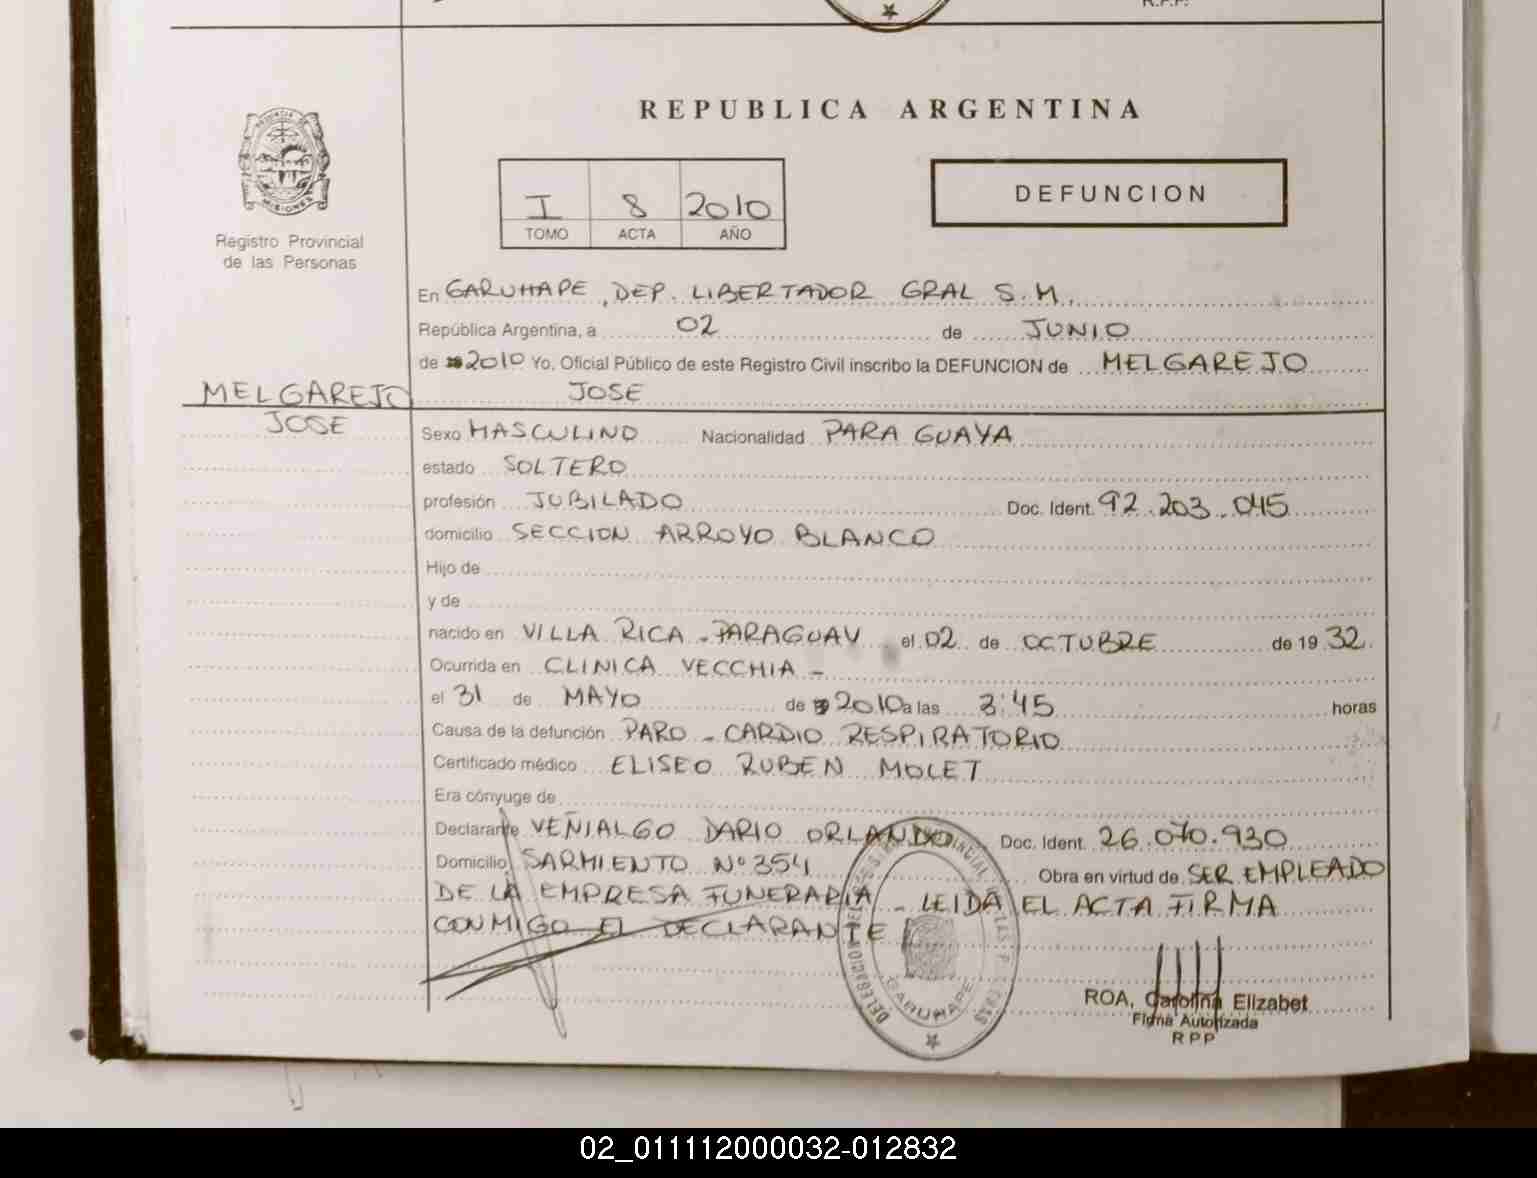 R.P.P.
REPUBLICA ARGENTINA
PROVINCIA DE
MISIONES
Registro Provincial
de las Personas
I 8 2010
TOMO ACTA AÑO
DEFUNCION
En GARUHAPE, DEP. LIBERTADOR GRAL S.M.
República Argentina, a 02 de JUNIO
de 2010 Yo, Oficial Público de este Registro Civil inscribo la DEFUNCION de MELGAREJO
JOSE
MELGAREJO
JOSE
Sexo MASCULINO Nacionalidad PARAGUAYA
estado SOLTERO
profesión JUBILADO Doc. Ident. 92.203.045
domicilio SECCION ARROYO BLANCO
Hijo de
y de
nacido en VILLA RICA - PARAGUAY el 02 de OCTUBRE de 1932
Ocurrida en CLINICA VECCHIA -
el 31 de MAYO de 2010 a las 3:45 horas
Causa de la defunción PARO - CARDIO RESPIRATORIO
Certificado médico ELISEO RUBEN MOLET
Era cónyuge de
Declarante VEÑIALGO DARIO ORLANDO Doc. Ident. 26.070.930
Domicilio SARMIENTO Nº 354 Obra en virtud de SER EMPLEADO
DE LA EMPRESA FUNERARIA - LEIDA EL ACTA FIRMA
CONMIGO EL DECLARANTE
GARUHAPE
ROA, Carolina Elizabet
Firma Autorizada
RPP
02_011112000032-012832